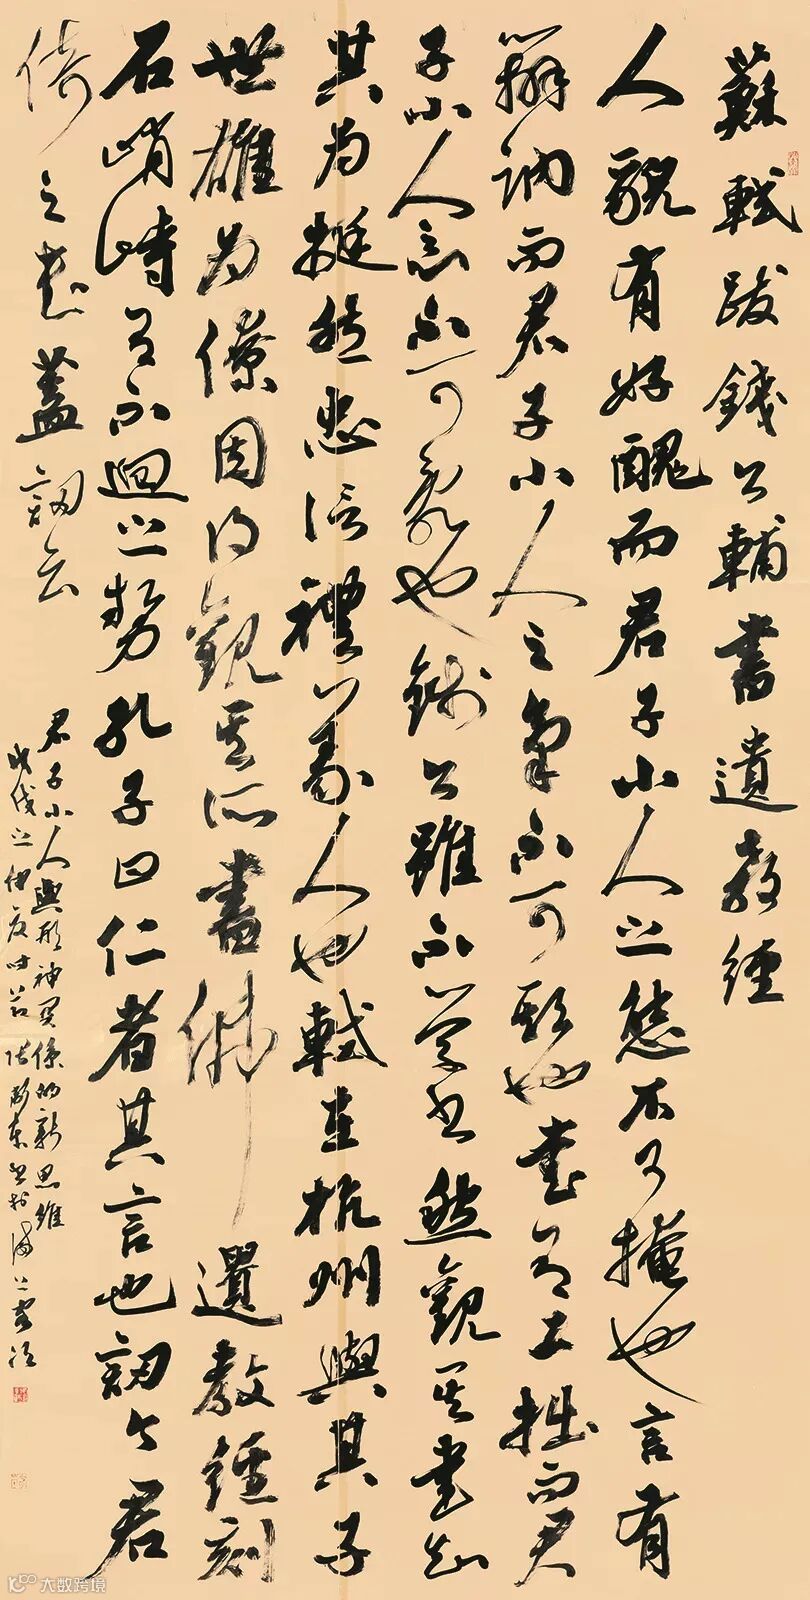 蘇軾跋錢公輔書遺教經
人貌有好醜而君子小人之態不可掩也言有
辯訥而君子小人之氣不可欺也書有工拙而君
子小人之心不可亂也錢公雖不學書然觀其書知
其為挺然忠信禮義人也軾在杭州與其子
世雄為僚因得觀其所書佛遺教經刻
石峭峙有不迴之勢孔子曰仁者其言也訒今君
倚之書蓋訒云
君子小人與形神關係的新思維
戊戌之伊夏時節東書於海上
大数跨境